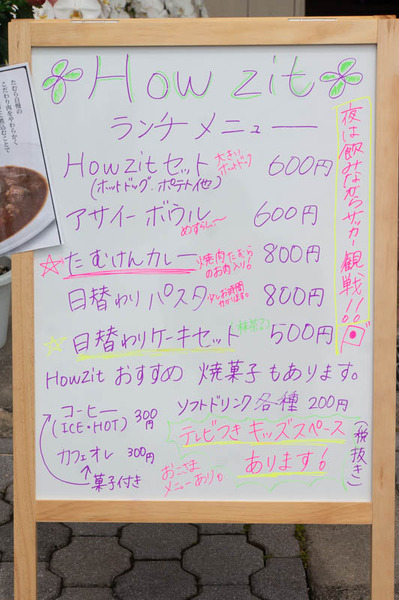 How zit
ランチメニュー
Howzitセット 大きいホットドッグ 600円
(ホットドッグ、ポテト他)
アサイーボウル めずらし〜 600円
☆たむけんカレー 焼肉たむらのお肉入り! 800円
日替わりパスタ 少しお時間かかります。 800円
☆日替わりケーキセット 500円
Howzitおすすめ 焼菓子もあります。
コーヒー 300円
(ICE・HOT)
カフェオレ 300円
↑菓子付き
ソフトドリンク各種 200円
テレビつきキッズスペース
あります!
おこさま
メニューあり。
(税抜き)
夜は飲みながらサッカー観戦!!
たむら自慢の
こだわり肉をやわらかく